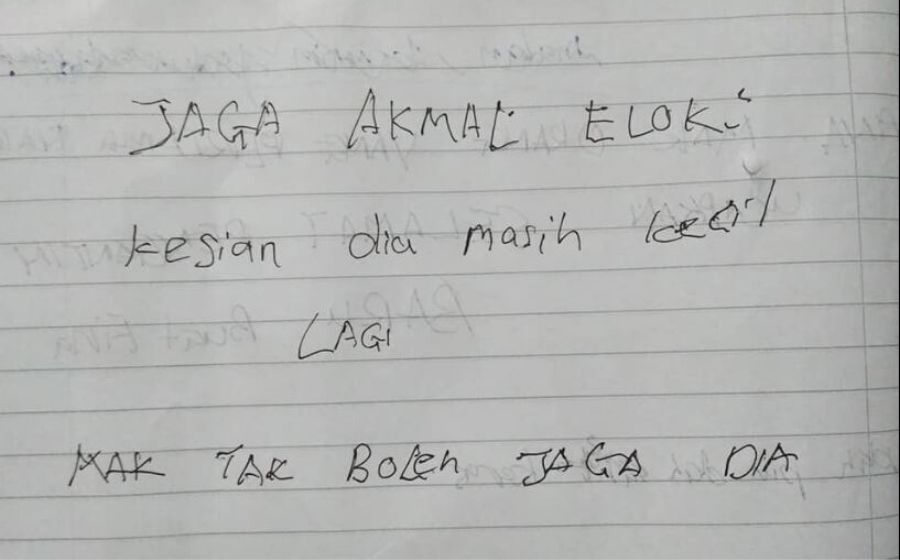 JAGA AKMAL ELOK²
kesian dia masih kecil
LAGI
MAK TAK BOLEH JAGA DIA